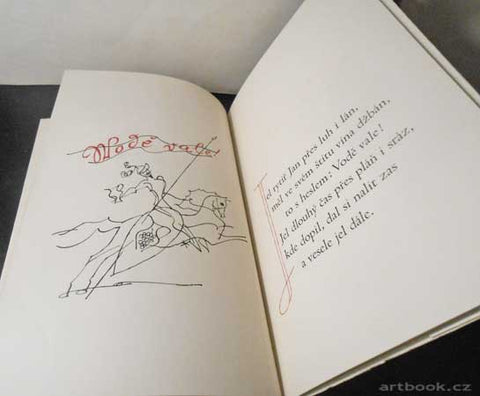 Wodě vale!
Jel rytíř Jan přes luh i lán,
měl ve svém štítu vína džbán,
to s heslem: Vodě vale!
Jel dlouhý čas přes pláň i sráz,
kde dopil, dal si nalít zas
a vesele jel dále.
artbook.cz